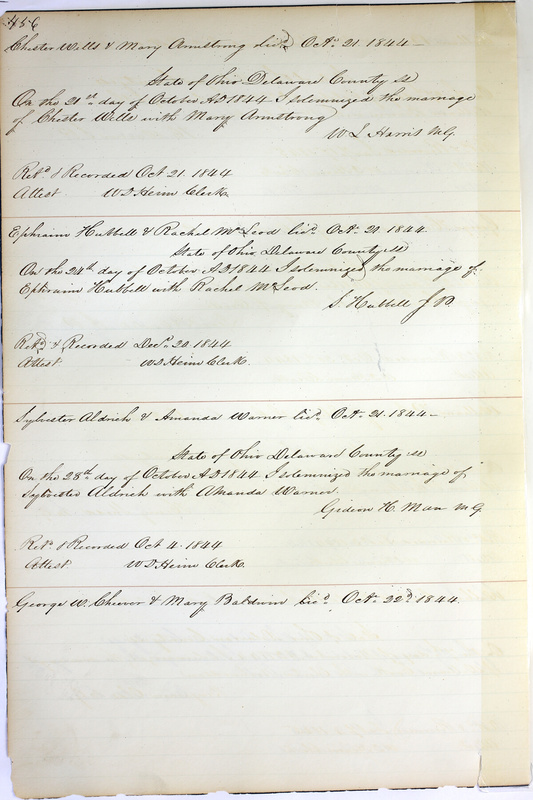 456
Chester Wells & Mary Armstrong licd Octr 21. 1844 —
State of Ohio Delaware County ss
On the 21st day of October AD 1844 I solemnized the marriage
of Chester Wells with Mary Armstrong
W L Harris M.G.
Retd & Recorded Oct 21. 1844
Attest W D Heim Clerk
Ephraim Hubbell & Rachel McLeod licd Octr 20. 1844.
State of Ohio Delaware County ss
On the 24th day of October AD 1844 I solemnized the marriage of
Ephraim Hubbell with Rachel McLeod.
S. Hubbell J P.
Retd & Recorded Decr 20. 1844
Attest. W D Heim Clerk.
Sylvester Aldrich & Amanda Warner licd Octr 21. 1844 —
State of Ohio Delaware County ss
On the 28th day of October AD 1844 I solemnized the marriage of
Sylvester Aldrich with Amanda Warner.
Gideon H. Man M G
Retd & Recorded Oct 4. 1844
Attest W D Heim Clerk.
George W. Cheever & Mary Baldwin licd Octr 22d 1844.